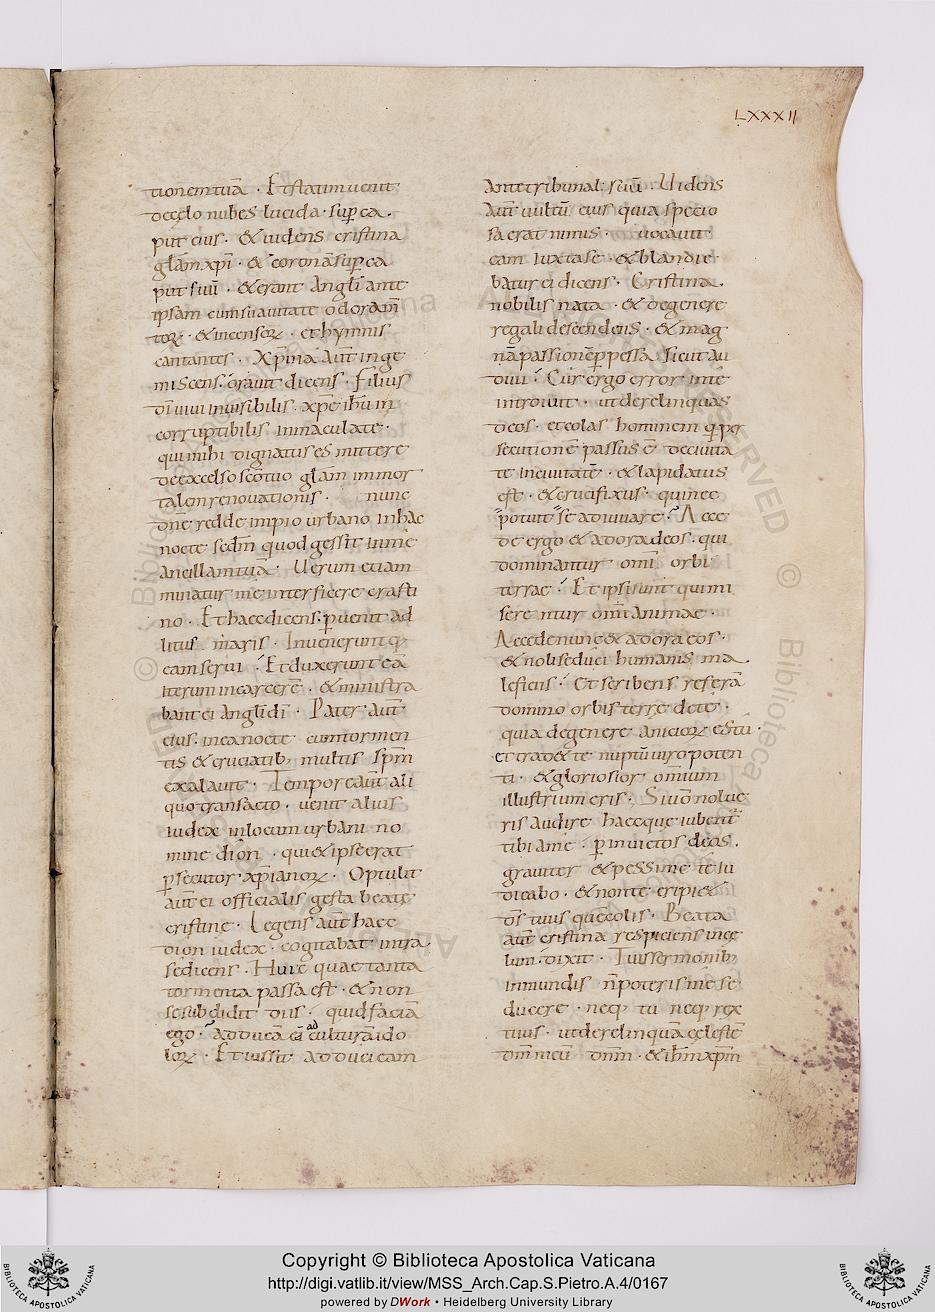 LXXXII
tionemtuā · Et statim uenit
de cęlo nubes lucida · sup ca
put eius · & uidens cristina
glām xpī · & coronā sup ca
put suū · & erant Angli ante
ipsam cum suauitate odoram̄
toꝝ · & incensoꝝ · et hymnis
cantantes · Xpīna aut̄ inge
miscens · orauit dicens · Filius
dī uiui inuisibilis · xpe ihu in
corruptibilis inmaculate ·
qui mihi dignatus es mittere
de excelso sc̄o tuo glām immor
talem renouationis · nunc
dn̄e redde impio urbano in hac
nocte sedm quod gessit in me
ancillam tuā · Uerum etiam
minatur me interficere crasti
no · Et haec dicens · puenit ad
litus maris · Inuenerunt q;
eam serui · Et duxerunt eā
iterum in carcerē · & ministra
bant ei anglī dī · Pater aut̄
eius · in ea nocte cum tormen
tis & cruciatib; multis sp̄m
exalauit · Tempore aut̄ ali
quo transacto · uenit alius
iudex in locum urbani no
mine dion · qui & ipse erat
psecutor xp̄ianoꝝ · Optulit
aut̄ ei officialis gesta beatę
cristinę · Legens aut̄ haec
dion iudex · cogitabat intra
se dicens · Huic quae tanta
tormenta passa est · & non
se subdidit diis · quid faciā
ego · adducā eā ad culturā ido
loꝝ · Et iussit adduci eam
Ante tribunal suū · Uidens
Aut̄ uultū eius quia specio
sa erat nimis · uocauit
eam iuxta se · & blandie
batur ei dicens · Cristina ·
nobilis nata · & de genere
regali descendens · & mag
nā passionē ppessa sicut au
diui · Cur ergo error in te
introiuit · ut derelinquas
deos · et colas hominem q p per
secutionē passus ē de ciuita
te in ciuitatē · & lapidatus
est · & crucifixus · qui nec
potuit se adiuuare · Acce
de ergo & adora deos · qui
dominantur omī orbi
terrae · Et ipsi sunt qui mi
serentur omī animae ·
Accede nunc & adora eos ·
& noli seduci humanis ma
leficiis · Et scribens referā
domino orbis terrę de te ·
quia de genere anicioꝝ es tu ·
et trado & te nuptū uiro poten
ti · & gloriosior omnium
illustrium eris · Si uō nolue
ris audire haec que iubent̄
tibi a me · p inuictos deos ·
grauiter & pessime te iu
dicabo · & non te eripi&
d̄s tuus quē colis · Beata
aut̄ cristina respiciens in cę
lum · dixit · Tui sermonib;
inmundis n̄ poteris me se
ducere · neq; tu neq; rex
tuus · ut derelinquā cęlestē
dm̄ meū dn̄m · & ihm̄ xpm̄
© Biblioteca Apostolica Vaticana
ALL RIGHTS RESERVED
Copyright © Biblioteca Apostolica Vaticana
http://digi.vatlib.it/view/MSS_Arch.Cap.S.Pietro.A.4/0167
powered by DWork • Heidelberg University Library
BIBLIOTECA APOSTOLICA VATICANA
BIBLIOTECA APOSTOLICA VATICANA